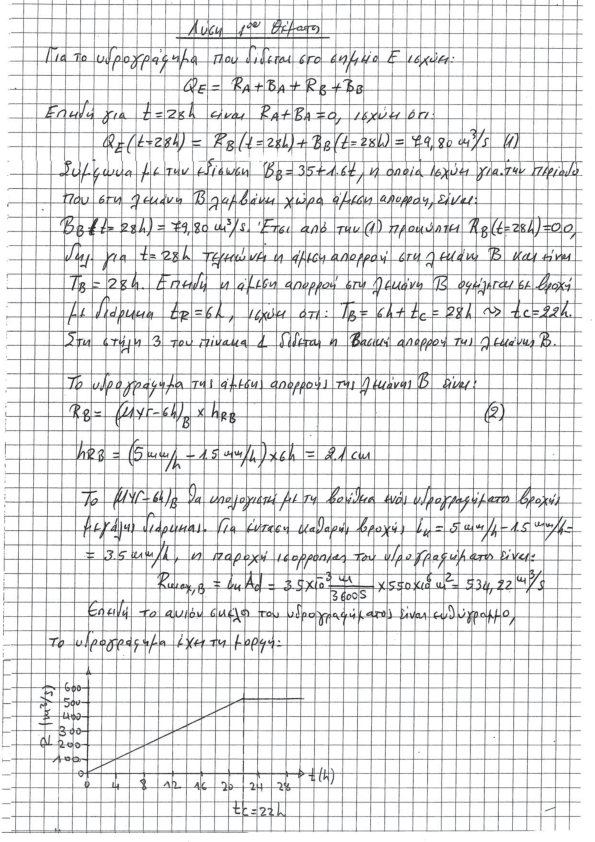 Λύση 1ου Θέματος
Για το υδρογράφημα που δίδεται στο σημείο Ε ισχύει:
QE = RA + BA + RB + BB
Επειδή για t=28h είναι RA+BA=0, ισχύει ότι:
QE(t=28h) = RB(t=28h) + BB(t=28h) = 79,80 m³/s (1)
Σύμφωνα με την εξίσωση BB=35+1.6t, η οποία ισχύει για την περίοδο
που στη λεκάνη Β λαμβάνει χώρα άμεση απορροή, είναι:
BB(t=28h) = 79,80 m³/s. Έτσι από την (1) προκύπτει RB(t=28h)=0.0,
δηλ. για t=28h τελειώνει η άμεση απορροή στη λεκάνη Β και είναι
TB = 28h. Επειδή η άμεση απορροή στη λεκάνη Β οφείλεται σε βροχή
με διάρκεια tR=6h, ισχύει ότι: TB = 6h + tc = 28h ⇝ tc=22h.
Στη στήλη 3 του πίνακα 1 δίδεται η Βασική απορροή της λεκάνης Β.
Το υδρογράφημα της άμεσης απορροής της λεκάνης Β είναι:
RB = (ΜΥΓ-6h)B × hRB (2)
hRB = (5 mm/h - 1.5 mm/h) × 6h = 2.1 cm
Το (ΜΥΓ-6h)B θα υπολογιστεί με τη βοήθεια ενός υδρογραφήματος βροχής
μεγάλης διάρκειας. Για ένταση καθαρής βροχής in = 5 mm/h - 1.5 mm/h =
= 3.5 mm/h, η παροχή ισορροπίας του υδρογραφήματος είναι:
= in Ad = 3.5×10⁻³ m/3600s × 550×10⁶ m² = 534,22 m³/s
Επειδή το ανιόν σκέλος του υδρογραφήματος είναι ευθύγραμμο,
το υδρογράφημα έχει τη μορφή:
R (m³/s)
600
500
400
300
200
100
0
0 4 8 12 16 20 24 28 t(h)
tc=22h